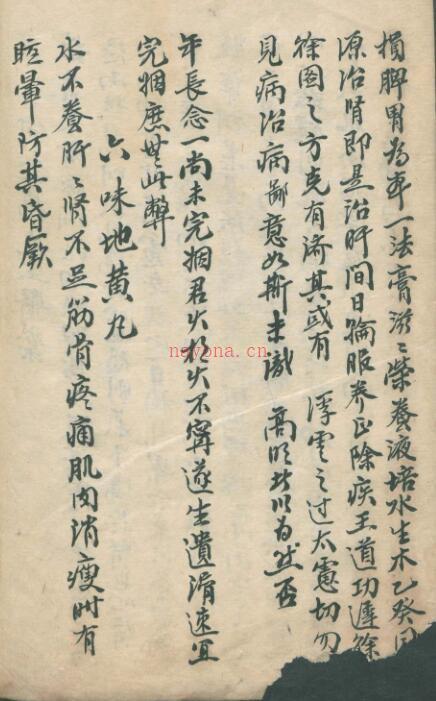 損脾胃為率一法膏滋〻榮養液培水生木乙癸同
源治腎即是治肝間日輪服養正除疾王道功遲餘
徐圖之方克有濟其或有浮雲之过太虛切勿
見病治病鄙意如斯未識 高明者以為然否
年長念一尚未完姻君火相火不寧遂生遺滑速宜
完姻庶無此弊
六味地黄丸
水不養肝〻腎不足筋骨疼痛肌肉消瘦時有
眩暈防其昏厥
nayona.cn